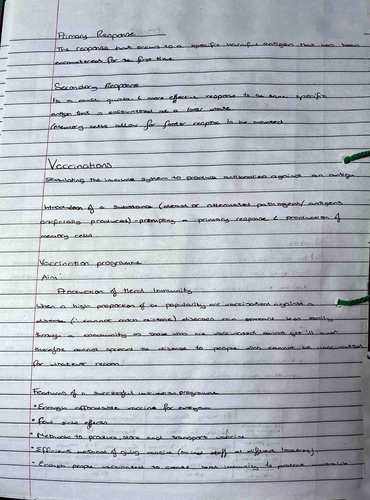 Primary Response
The response that occurs to a specific antigen that has been
encountered for the first time
Secondary Response
Is a much quicker & more effective response to the same specific
antigen that is encountered at a later
memory cells allow for faster response to be mounted
Vaccinations
Stimulating the immune system to produce antibodies against an antigen
Introduction of a substance ( or attenuated pathogens/ antigens
artificially produced) - prompting a primary response & production of
memory cells
Vaccination programme
Aim:
Production of Herd Immunity
When a high proportion of the are vaccinated against a
disease (∴ cannot catch disease) diseases can spread less easily
through a community as those who are vaccinated cannot get ill
therefore cannot spread the disease to people who cannot be vaccinated
for whatever reason.
Features of a successful programme
• Enough affordable vaccine for everyone
• Few side effects
• Methods to produce, store and transport vaccine
• Efficient method of giving vaccine ( staff at different locations)
• Enough people vaccinated to create herd immunity to protect